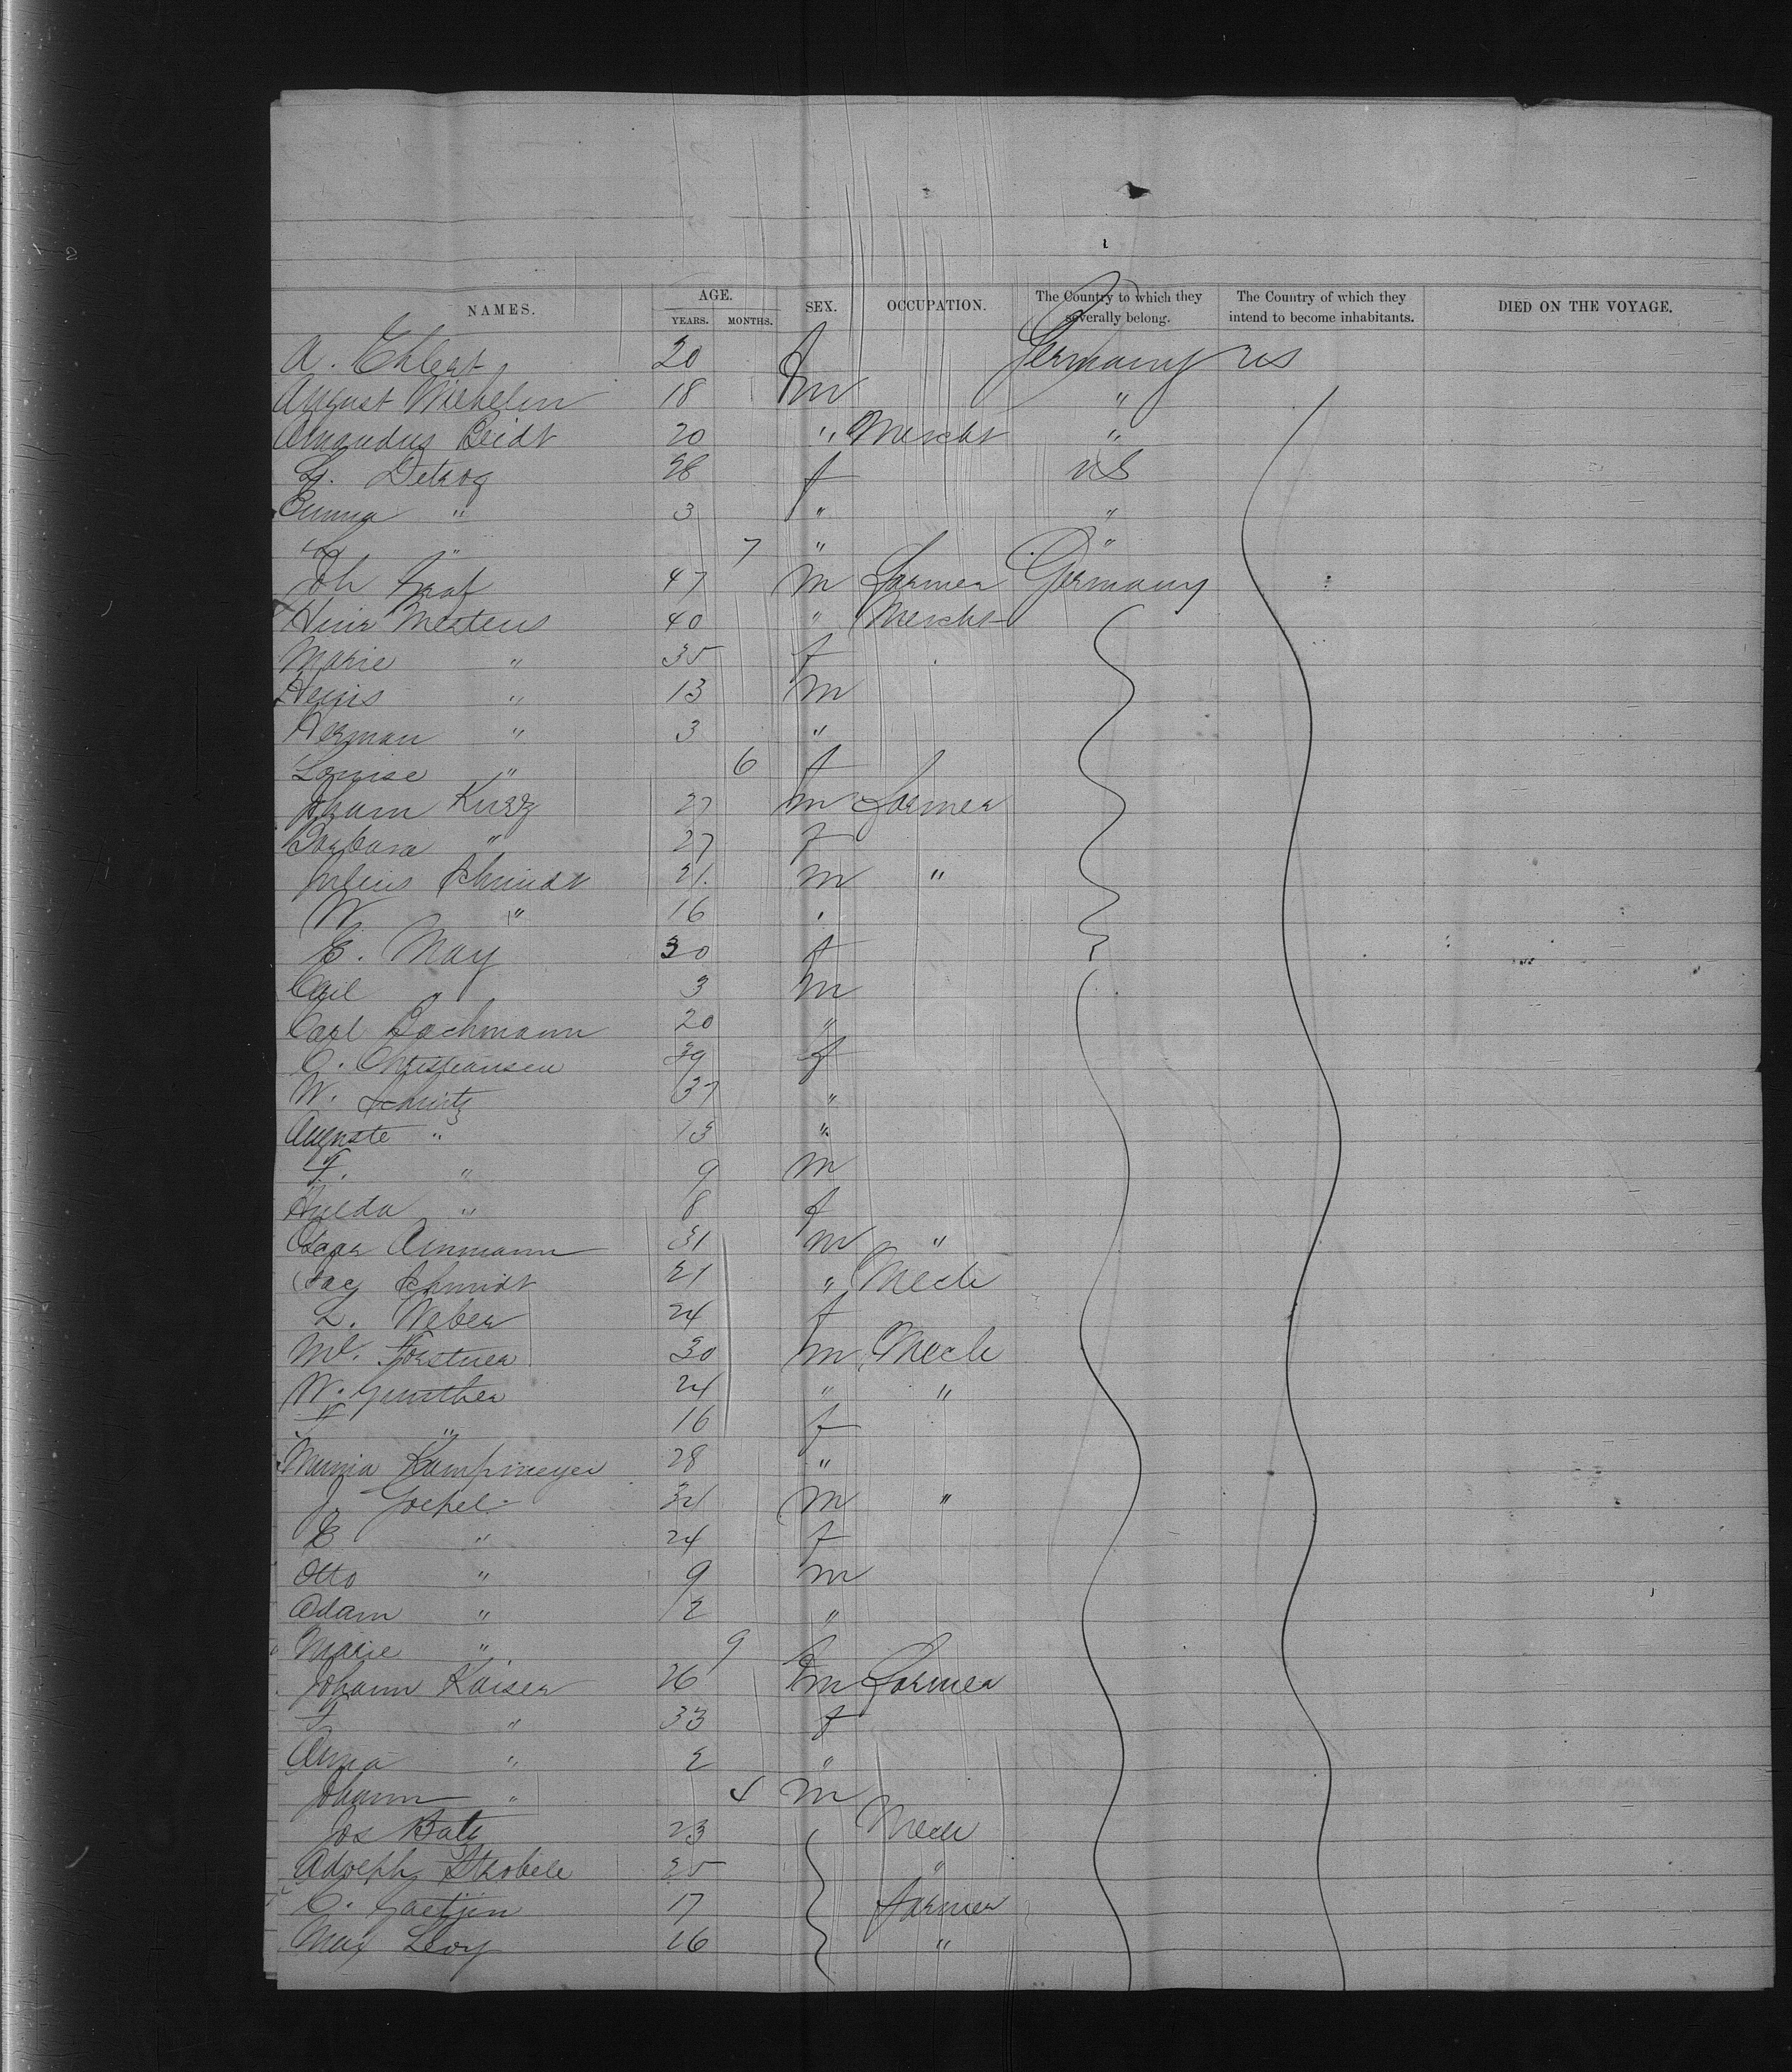 NAMES. AGE. YEARS. MONTHS. SEX. OCCUPATION. The Country to which they severally belong. The Country of which they intend to become inhabitants. DIED ON THE VOYAGE.
A. Ehlert 20 f Germany US
August Wilhelm 18 m "
Amandus Beidt 20 " Mercht "
G. Detrog 28 f US
Emma " 3 " "
" 7 " "
Joh Graf 47 m Farmer Germany
Heinr Mertens 40 " Mercht
Marie " 35 f
Heinr " 13 m
Herman " 3 "
Louise " 6 f
Johann Kurz 27 m Farmer
Barbara " 27 f
Julius Schmidt 21 m "
W. " 16
E. May 30 f
Carl " 3 m
Carl Bachmann 20 "
C. Christiansen 29 f
W. Schultz 37 "
Auguste " 13 "
F. " 9 m
Hulda " 8 f
Oscar Ainmann 31 m "
Jac Schmidt 21 " Mech
L. Weber 24 f
Mr. Forstner 30 m Mech
W. Gunther 24 " "
F " 16 f
Minna Kampmeyer 28 "
J. Goepel 34 m "
E " 24 f
Otto " 9 m
Adam " 2 "
Marie " 9 f
Johann Kaiser 26 m Farmer
F " 33 f
Anna " 2 "
Johann " 4 m
Jos Batz 23 Mech
Adolph Strobele 25 "
C. Gaetjen 17 Farmer
Max Levy 16 "